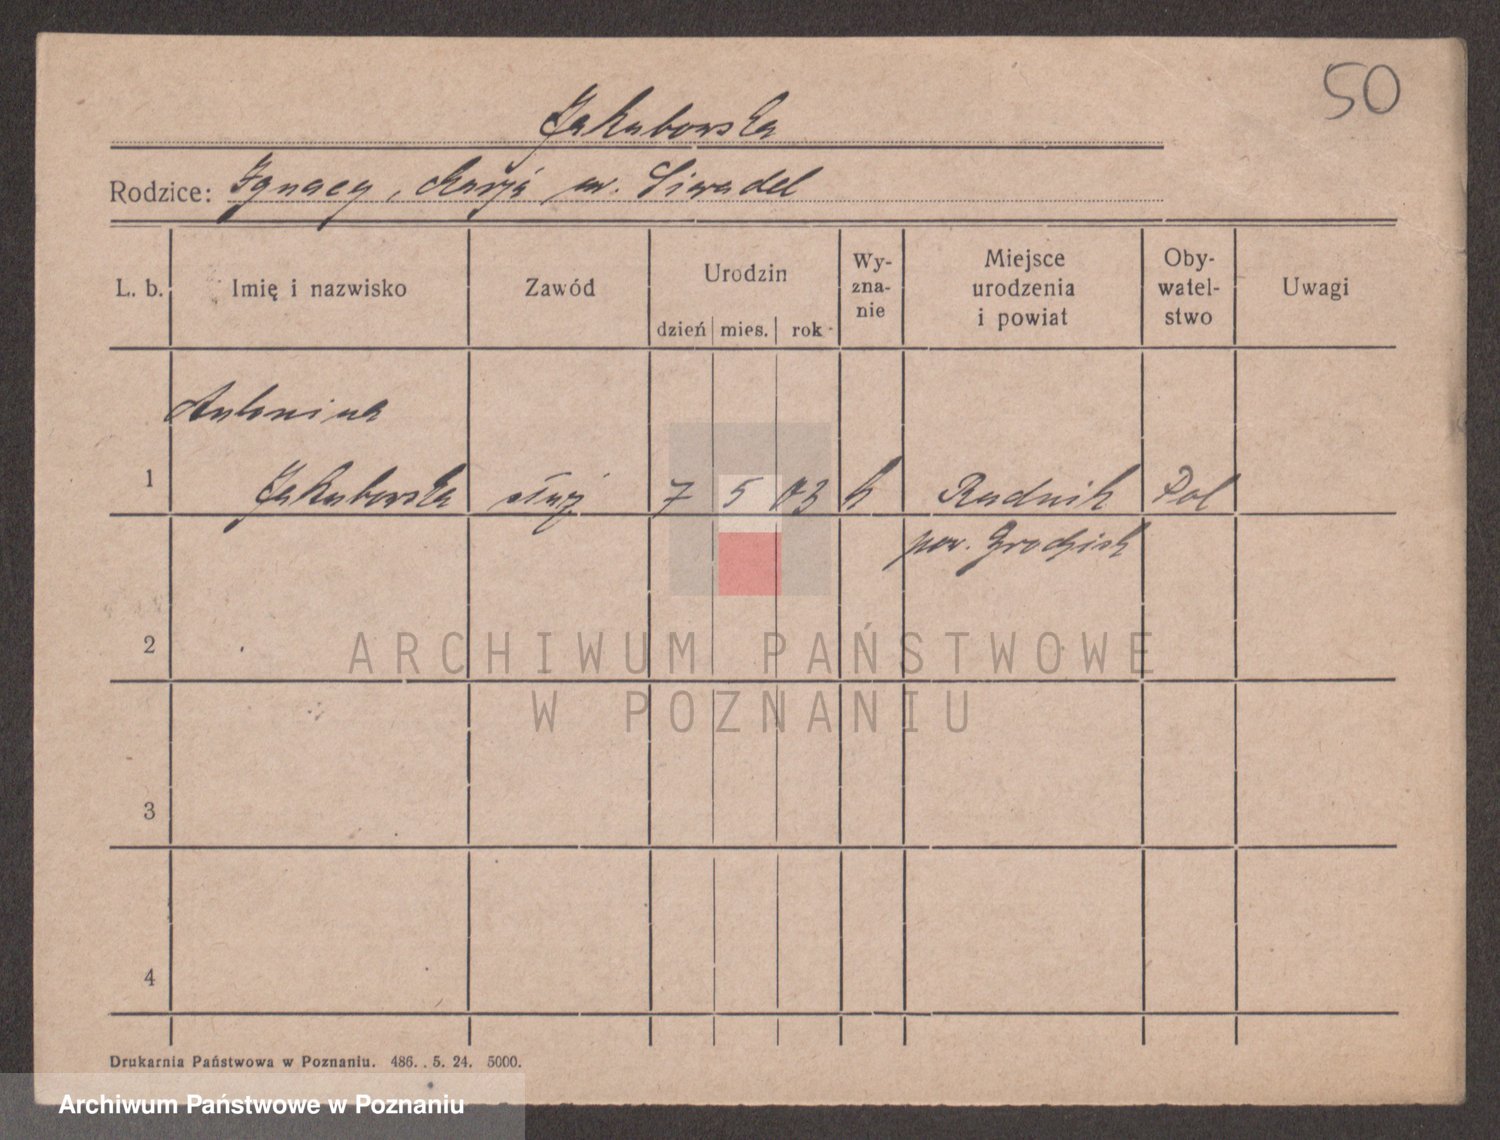 50
Jakubowska
Rodzice: Ignacy, Marja
L. b. Imię i nazwisko Zawód Urodzin Wy-zna-nie Miejsce urodzenia i powiat Oby-watel-stwo Uwagi
dzień mies. rok
Antonina
1 Jakubowska służ 7 5 03 k Rudnik Pol
pow. Grodzisk
2
ARCHIWUM PAŃSTWOWE
W POZNANIU
3
4
Drukarnia Państwowa w Poznaniu. 486. . 5. 24. 5000.
Archiwum Państwowe w Poznaniu